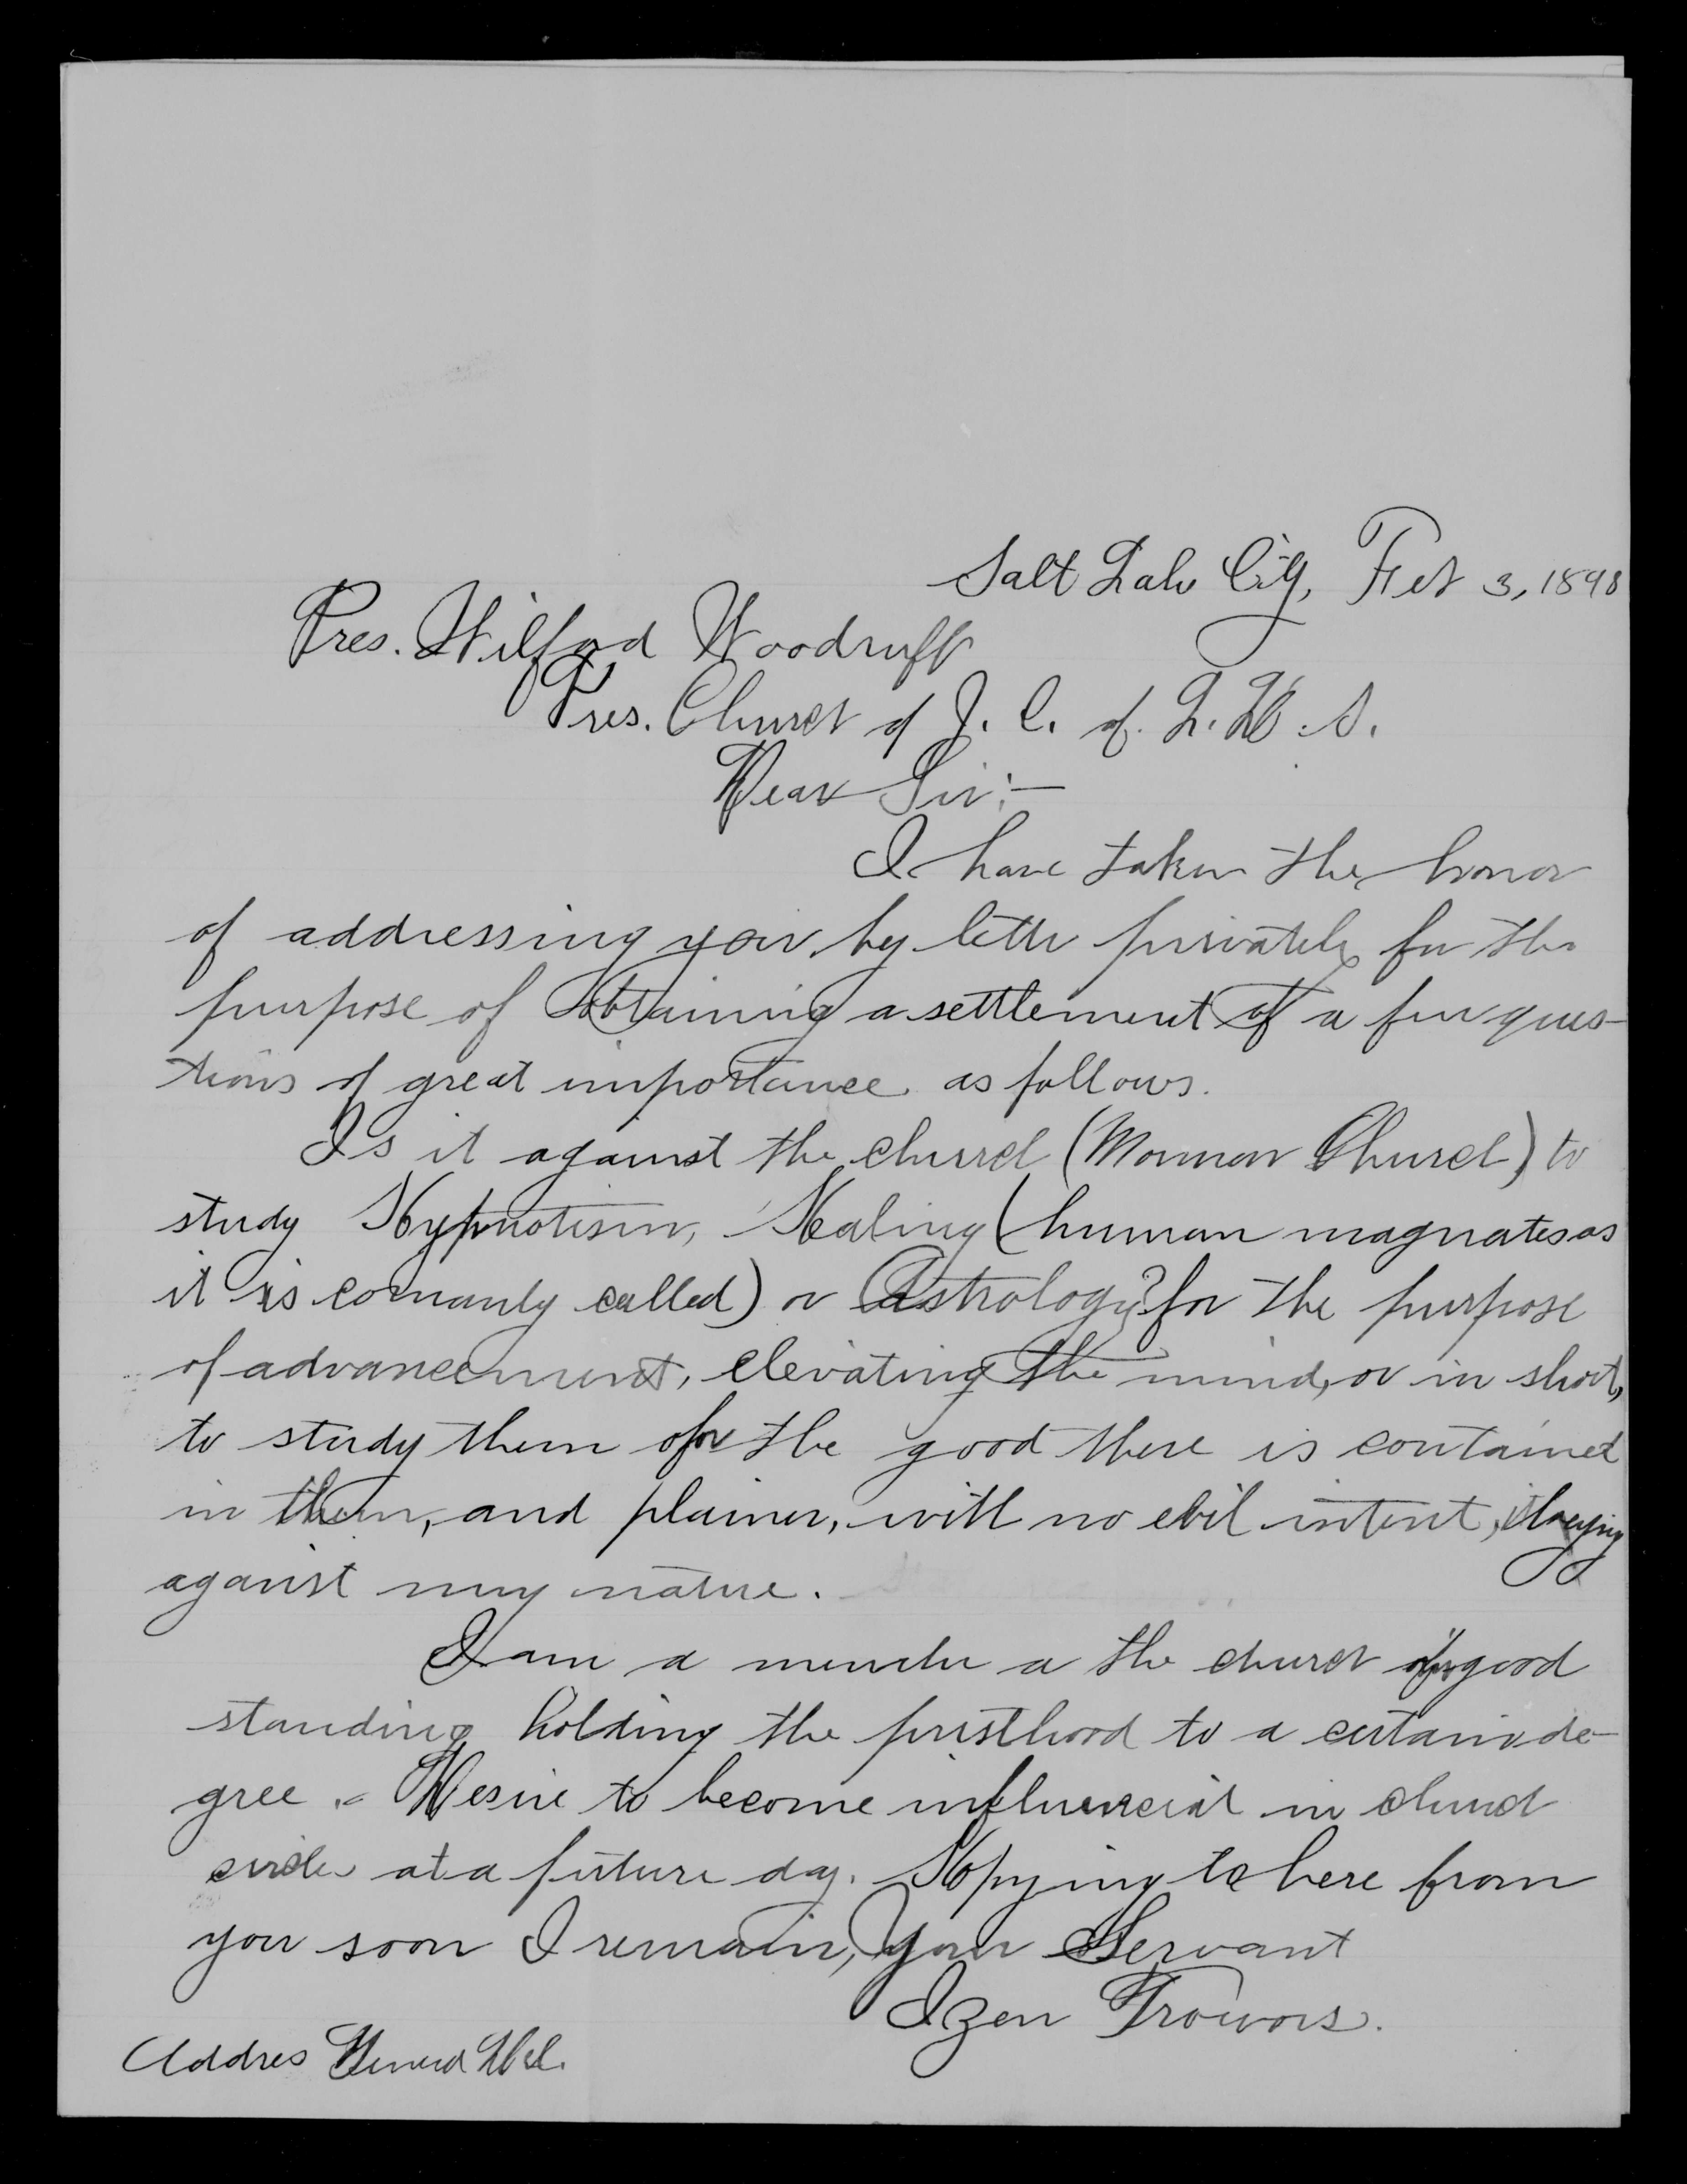 Salt Lake City, Feb 3, 1898
Pres. Wilford Woodruff
Pres. Church of J. C. of L. D. S.
Dear Sir:—
I have taken the honor
of addressing you by letter privately for the
purpose of obtaining a settlement of a few ques-
tions of great importance as follows.
Is it against the church (Mormon Church) to
study Hypnotism, Healing (human magnates as
it is comanly called) or Astrology? for the purpose
of advancement, elevating the mind, or in short,
to study them for the good there is contained
in them, and plainer, with no evil intent, it
against my nature.
I am a member a the church in good
standing holding the priesthood to a certain de-
gree. Desire to become influencial in church
circles at a future day. Hopying to here from
you soon I remain, Your Servant
Izen Trowors.
Addres General Del.